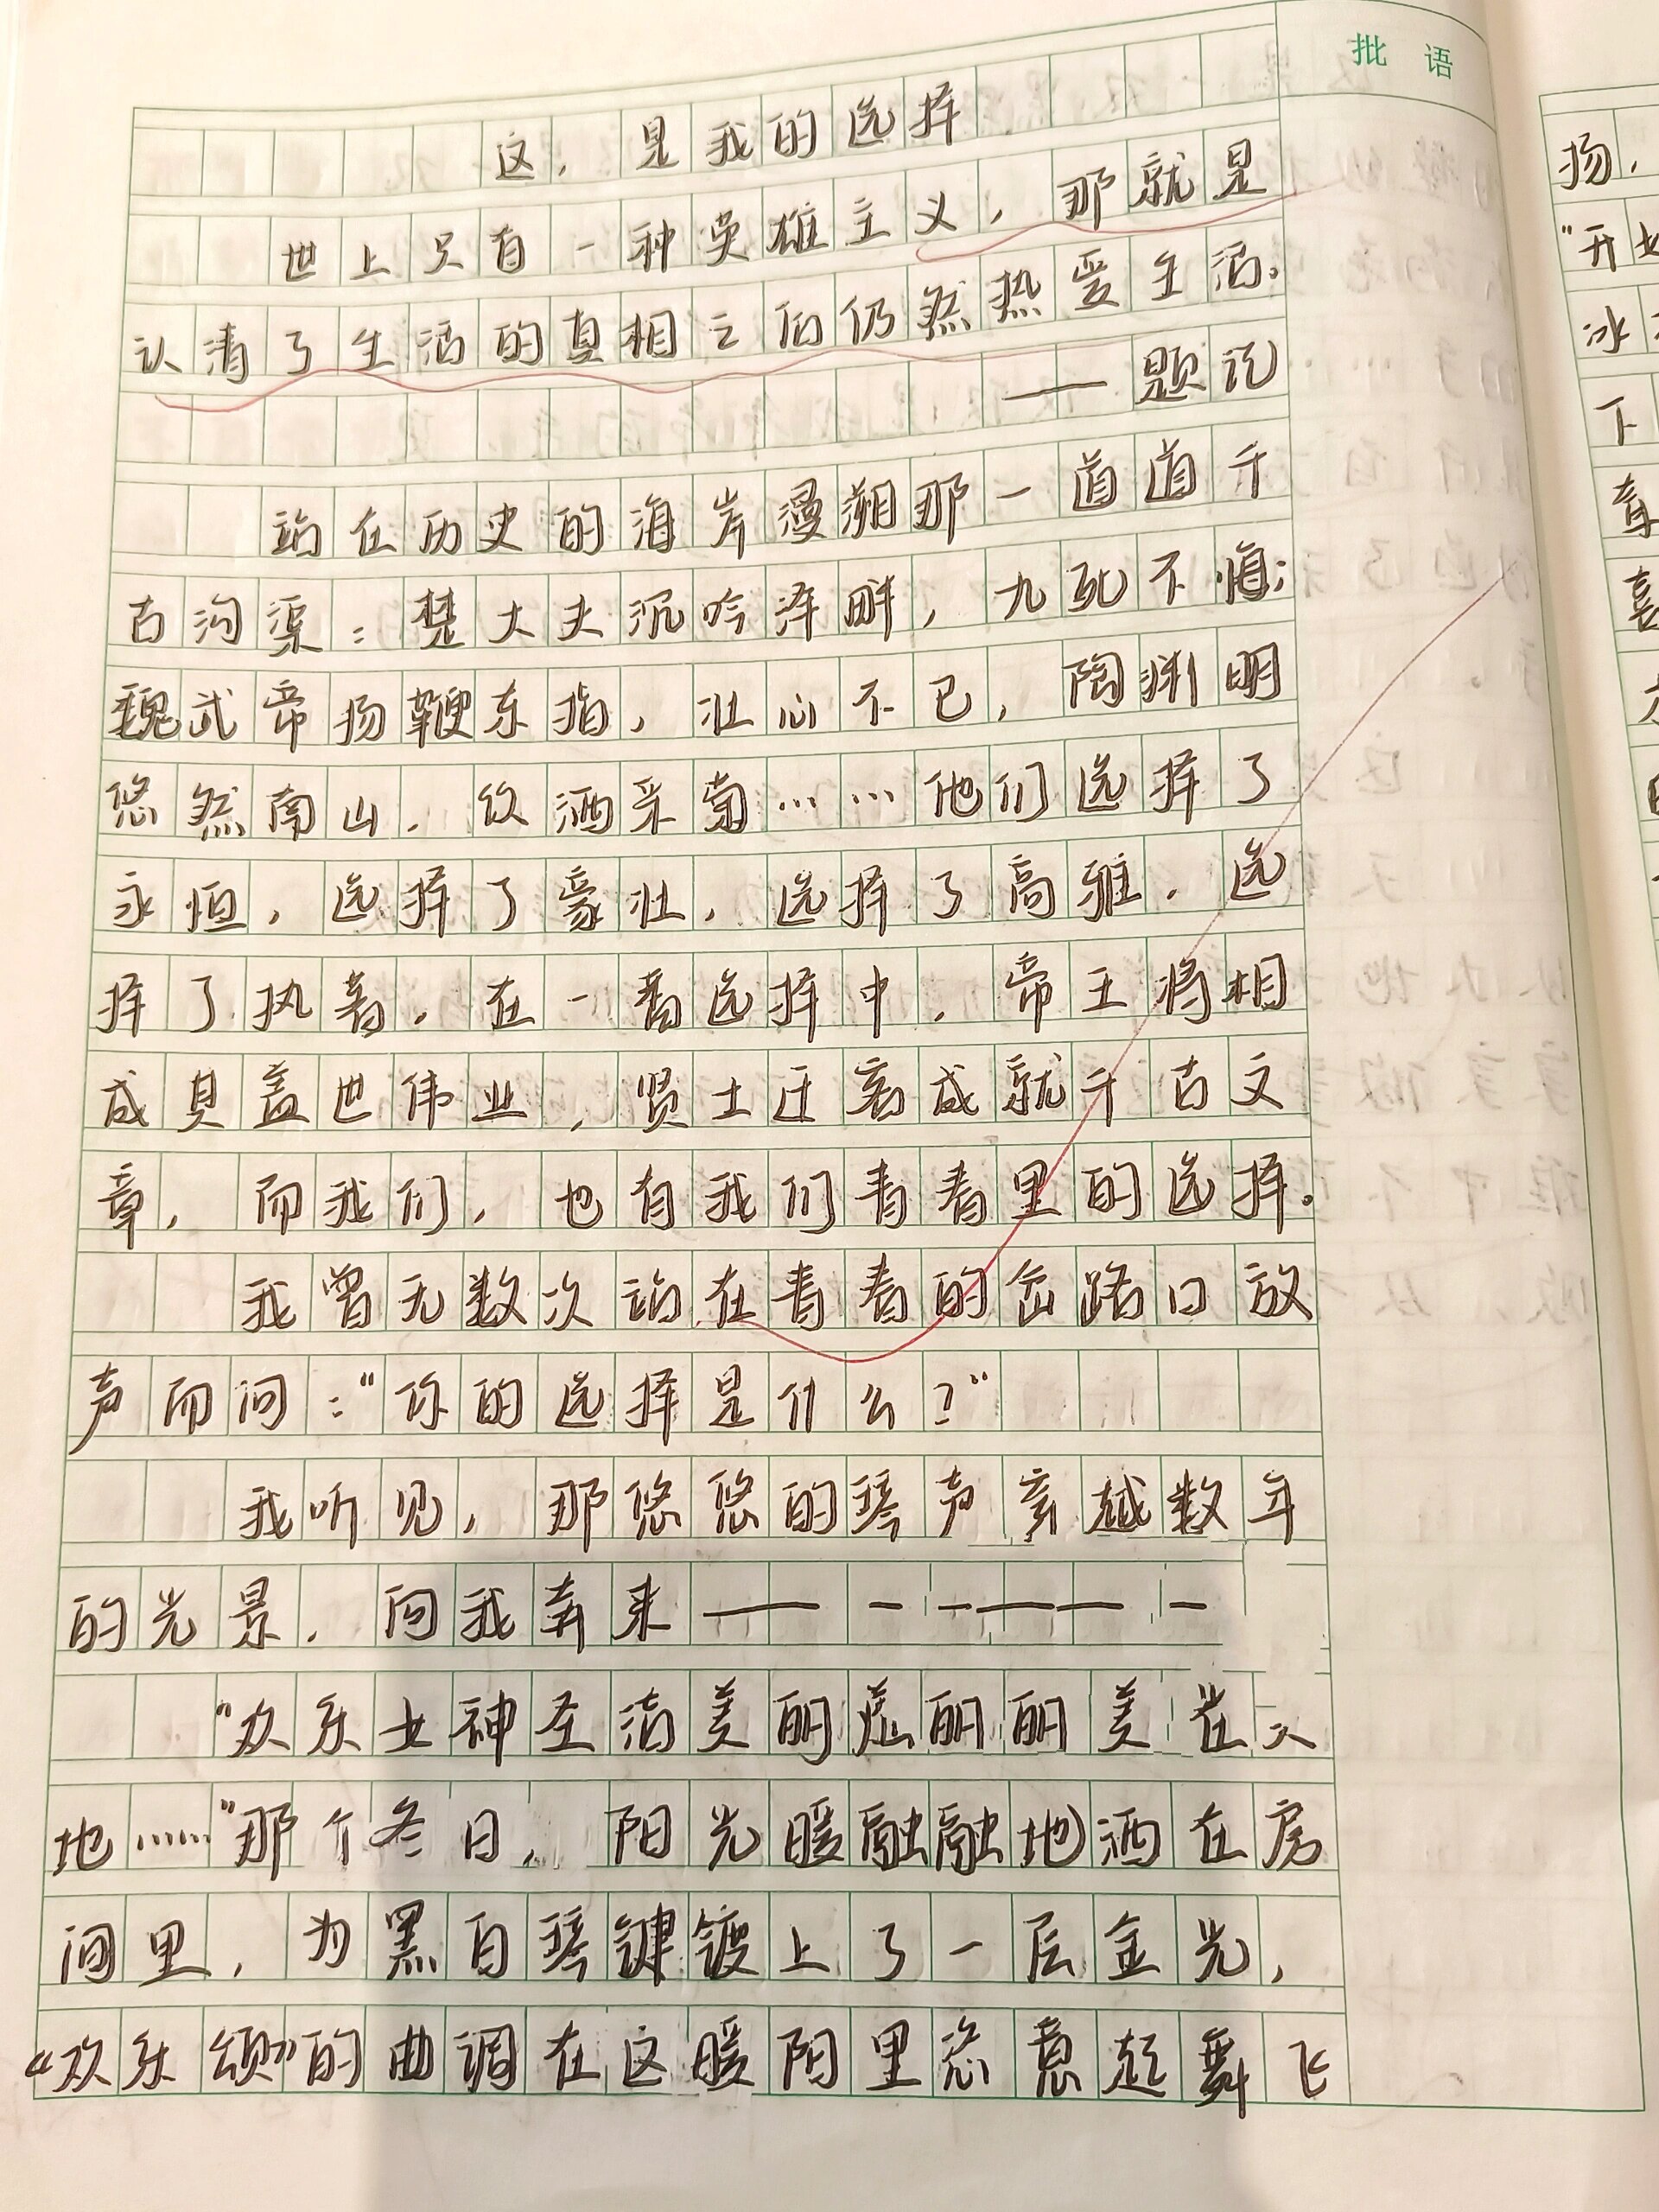 批 语
这，是我的选择
世上只有一种英雄主义，那就是
认清了生活的真相之后仍然热爱生活。
——题记
站在历史的海岸漫溯那一道道千
古沟渠：楚大夫沉吟泽畔，九死不悔；
魏武帝扬鞭东指，壮心不已，陶渊明
悠然南山，饮酒采菊……他们选择了
永恒，选择了豪壮，选择了高雅，选
择了执着。在一番选择中，帝王将相
成其盖世伟业，贤士迁客成就千古文
章，而我们，也有我们青春里的选择。
我曾无数次站在青春的岔路口放
声而问：“你的选择是什么？”
我听见，那悠悠的琴声穿越数年
的光景，向我奔来——
“欢乐女神圣洁美丽 丽丽美
地……”那个冬日，阳光暖融融地洒在房
间里，为黑白琴键镀上了一层金光，
“欢乐颂”的曲调在这暖阳里恣意起舞飞
扬，
冰
下
喜